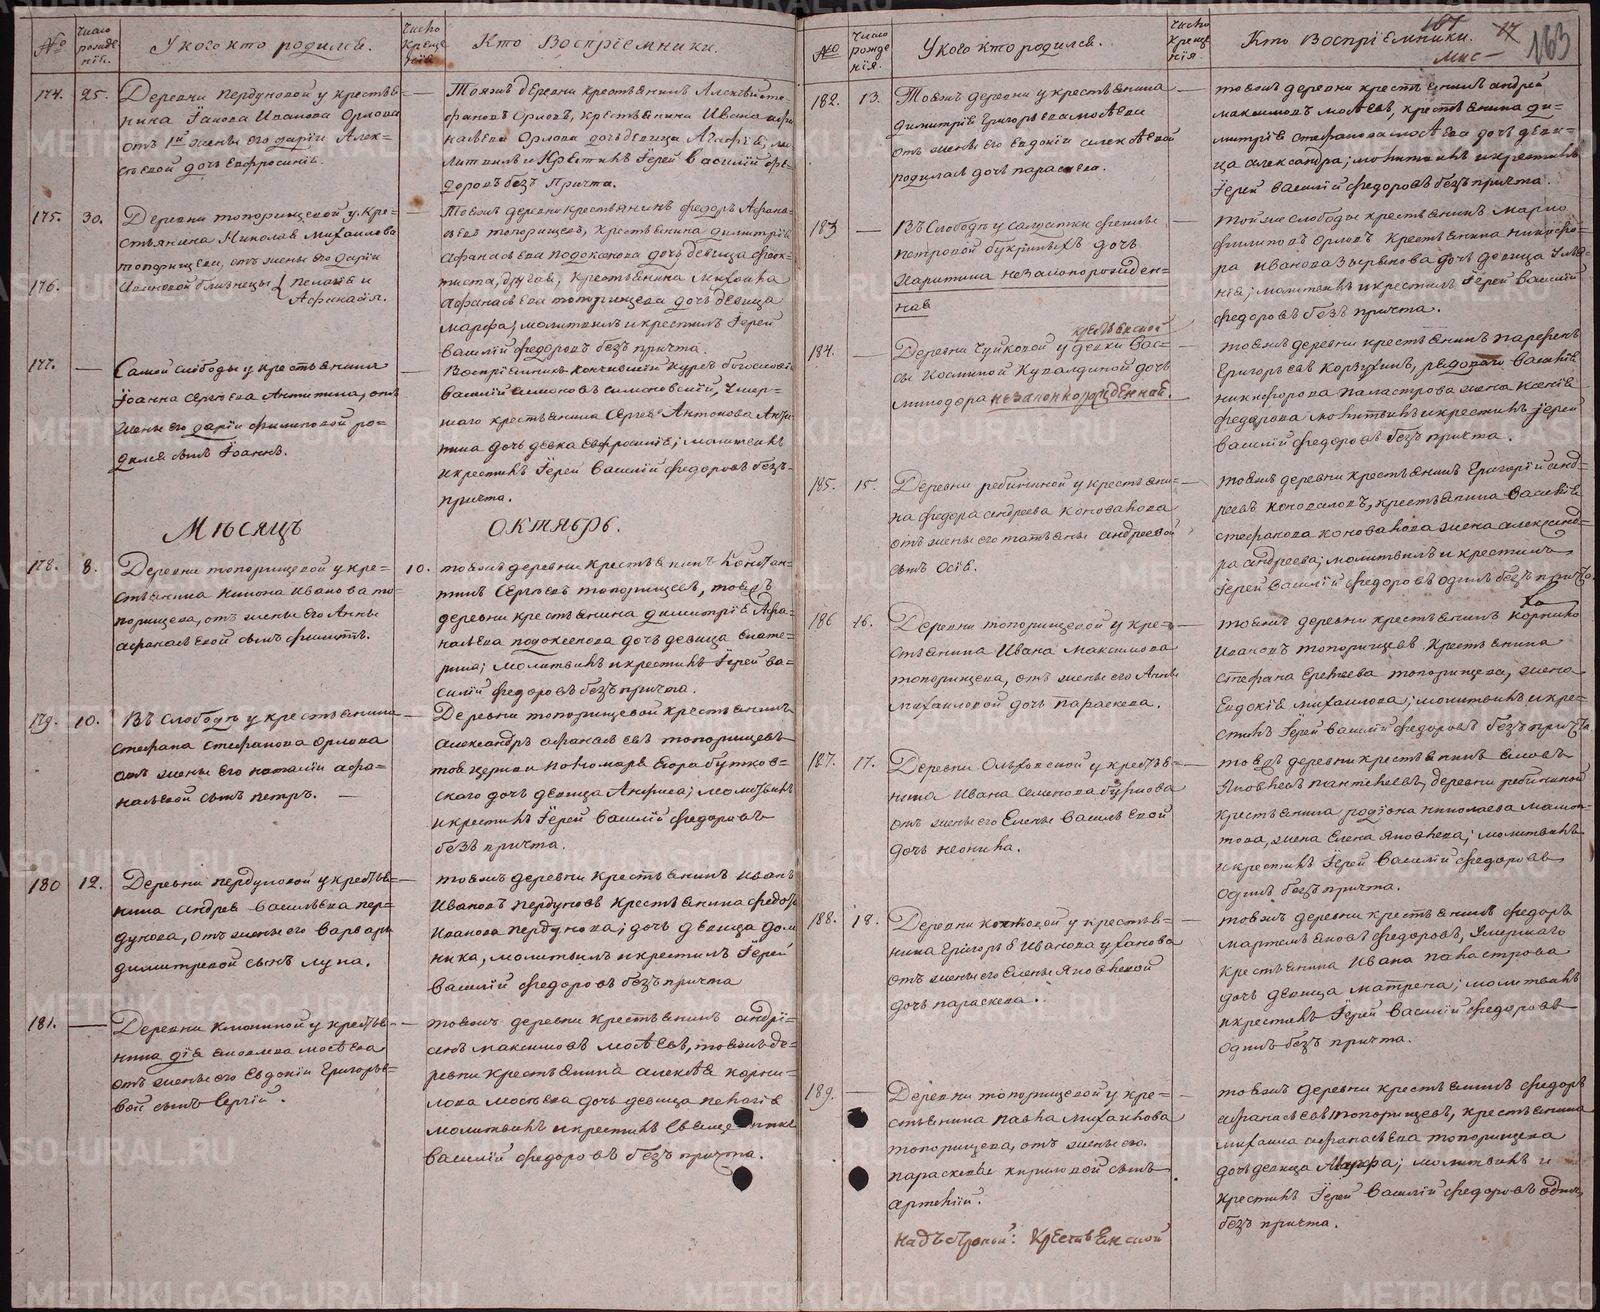 №
Число рожде- нiя.
У кого кто родился.
Число Креще- нiя
Кто Воспрiемники.
174. 25.
Деревни Пердуновой у крестья-
нина Iакова Иванова Орлова
отъ 1й жены его Дарiи Алек-
сѣевой дочь Евфросинiя.
Тояжъ деревни крестьянинъ Алексѣй Сте-
фановъ Орловъ, крестьянина Ивана Афа-
насьева Орлова дочь девица Агафiя; мо-
литвилъ и Крестилъ Iерей Василiй Фе-
доровъ безъ Причта.
175. 30.
176.
Деревни Топорищевой у Кре-
стьянина Николая Михайлова
Топорищева, отъ жены его Дарiи
Ивановой близнецы Пелагiя и
Афанасiя.
Тояжъ деревни крестьянинъ Федоръ Афана-
сьевъ Топорищевъ, крестьянина Димитрiя
Афанасьева дочь девица Феок-
тиста, другая, крестьянина Михаила
Афанасьева Топорищева дочь девица
Марфа; молитвилъ и крестилъ Iерей
Василiй Федоровъ безъ причта.
177. —
Самой слободы у крестьянина
Iоанна Сергѣева Антипина, отъ
жены его Дарiи Филиповой ро-
дился сынъ Iоаннъ.
Воспрiемникъ кончившiй курсъ богословiя
Василiй Симоновъ, умер-
шаго крестьянина Сергѣя Антонова Анти-
пина дочь девка Евфросинiя; молитвилъ
и крестилъ Iерей Василiй Федоровъ безъ
причта.
Мѣсяцъ Октябрь.
178. 8.
Деревни Топорищевой у кре-
стьянина Никона Иванова То-
порищева, отъ жены его Анны
Афанасьевой сынъ Филиппъ.
10.
Тояжъ деревни крестьянинъ Констан-
тинъ Сергѣевъ Топорищевъ, тояжъ
деревни крестьянина Димитрiя Афа-
насьева дочь девица Екате-
рина; молитвилъ и крестилъ Iерей Ва-
силiй Федоровъ безъ причта.
179. 10.
Въ Слободѣ у крестьянина
Стефана Стефанова Орлова
отъ жены его Наталiи Афа-
насьевой сынъ Петръ. —
Деревни Топорищевой крестьянинъ
Александръ Афанасьевъ Топорищевъ
тоя церкви Пономаря Егора Бутков-
скаго дочь девица Анфиса; молитвилъ
и крестилъ Iерей Василiй Федоровъ
безъ причта.
180 12.
Деревни Пердуновой у крестья-
нина Андрея Васильева Пер-
дунова, отъ жены его Варвары
Димитревой сынъ Лука.
Тояжъ деревни крестьянинъ Иванъ
Ивановъ Пердуновъ крестьянина Федота
Иванова Пердунова; дочь девица Дом-
ника, молитвилъ и крестилъ Iерей
Василiй Федоровъ безъ причта
181. —
Деревни у крестья-
нина Яковлева Мосѣева
отъ жены его Евдокiи Григорье-
вой сынъ Сергiй.
Тояжъ деревни крестьянинъ Андрi-
анъ Максимовъ Мосѣевъ, тояжъ де-
ревни крестьянина Алексѣя Корни-
лова Мосѣева дочь девица Пелагiя
молитвилъ и крестилъ Священникъ
Василiй Федоровъ безъ причта.
163
№
Число рожде- нiя.
У кого кто родился.
Число Креще- нiя.
Кто Воспрiемники.
182. 13.
Тояжъ деревни у крестьянина
Димитрiя Григорьева Мосѣева
отъ жены его Евдокiи Алексѣевой
родилась дочь Параскева.
Тояжъ деревни крестьянинъ Андрей
Максимовъ Мосѣевъ, крестьянина Ди-
митрiя Стефанова Мосѣева дочь деви-
ца Александра; молитвилъ и крестилъ
Iерей Василiй Федоровъ безъ причта.
183 —
Въ Слободѣ у солдатки
Петровой дочь
Харитина незаконорожден-
ная
Той же слободы крестьянинъ
Филиповъ Орловъ крестьянина Никифо-
ра Иванова Зырянова дочь девица Улья-
нiя; молитвилъ и крестилъ Iерей Василiй
Федоровъ безъ причта.
184. —
крестьянской
Деревни у девки Вас-
сы Космины дочь
Минодора незаконнорожденная.
Тояжъ деревни крестьянинъ Парфенъ
Григорьевъ Корзухинъ,
Никифорова Паластрова жена Ксенiя
Федорова молитвилъ и крестилъ Iерей
Василiй Федоровъ безъ причта.
185. 15.
Деревни Рябининой у крестьяни-
на Федора Андреева Коновалова
отъ жены его Татьяны Андреевой
сынъ Осiя.
Тояжъ деревни крестьянинъ Григорiй Анд-
реевъ Коноваловъ, крестьянина Василiя
Стефанова Коновалова жена Александ-
ра Андреева; молитвилъ и крестилъ
Iерей Василiй Федоровъ одинъ безъ причта.
186 16.
Деревни Топорищевой у кре-
стьянина Ивана Максимова
Топорищева, отъ жены его Анны
Михайловой дочь Параскева.
Тояжъ деревни крестьянинъ Корнило
Ивановъ Топорищевъ крестьянина
Стефана Еремѣева Топорищева, жена
Евдокiя Михайлова; молитвилъ и кре-
стилъ Iерей Василiй Федоровъ безъ причта
187. 17.
Деревни Ольховской у крестья-
нина Ивана Семенова Бурнова
отъ жены его Елены Васильевой
дочь Неонила.
Тояжъ деревни крестьянинъ
Яковлевъ Пантелеевъ, деревни Рябининой
крестьянина Родiона Николаева Мамон-
това, жена Елена Яковлева; молитвилъ
и крестилъ Iерей Василiй Федоровъ
одинъ безъ причта.
188. 18.
Деревни у крестья-
нина Григорья Иванова Уханова
отъ жены его Елены Яковлевой
дочь Параскева.
Тояжъ деревни крестьянинъ Федоръ
Федоровъ, Умершаго
крестьянина Ивана Паластрова
дочь девица Матрена; молитвилъ
и крестилъ Iерей Василiй Федоровъ
одинъ безъ причта.
189. —
Деревни Топорищевой у кре-
стьянина Павла Михайлова
Топорищева, отъ жены его
Параскевы Кириловой сынъ
Артемiй.
Тояжъ деревни крестьянинъ Федоръ
Афанасьевъ Топорищевъ, крестьянина
Михаила Афанасьева Топорищева
дочь девица Марфа; молитвилъ и
крестилъ Iерей Василiй Федоровъ одинъ
безъ причта.
Надъ строкой: Крестьянской
METRIKI.GASO-URAL.RU